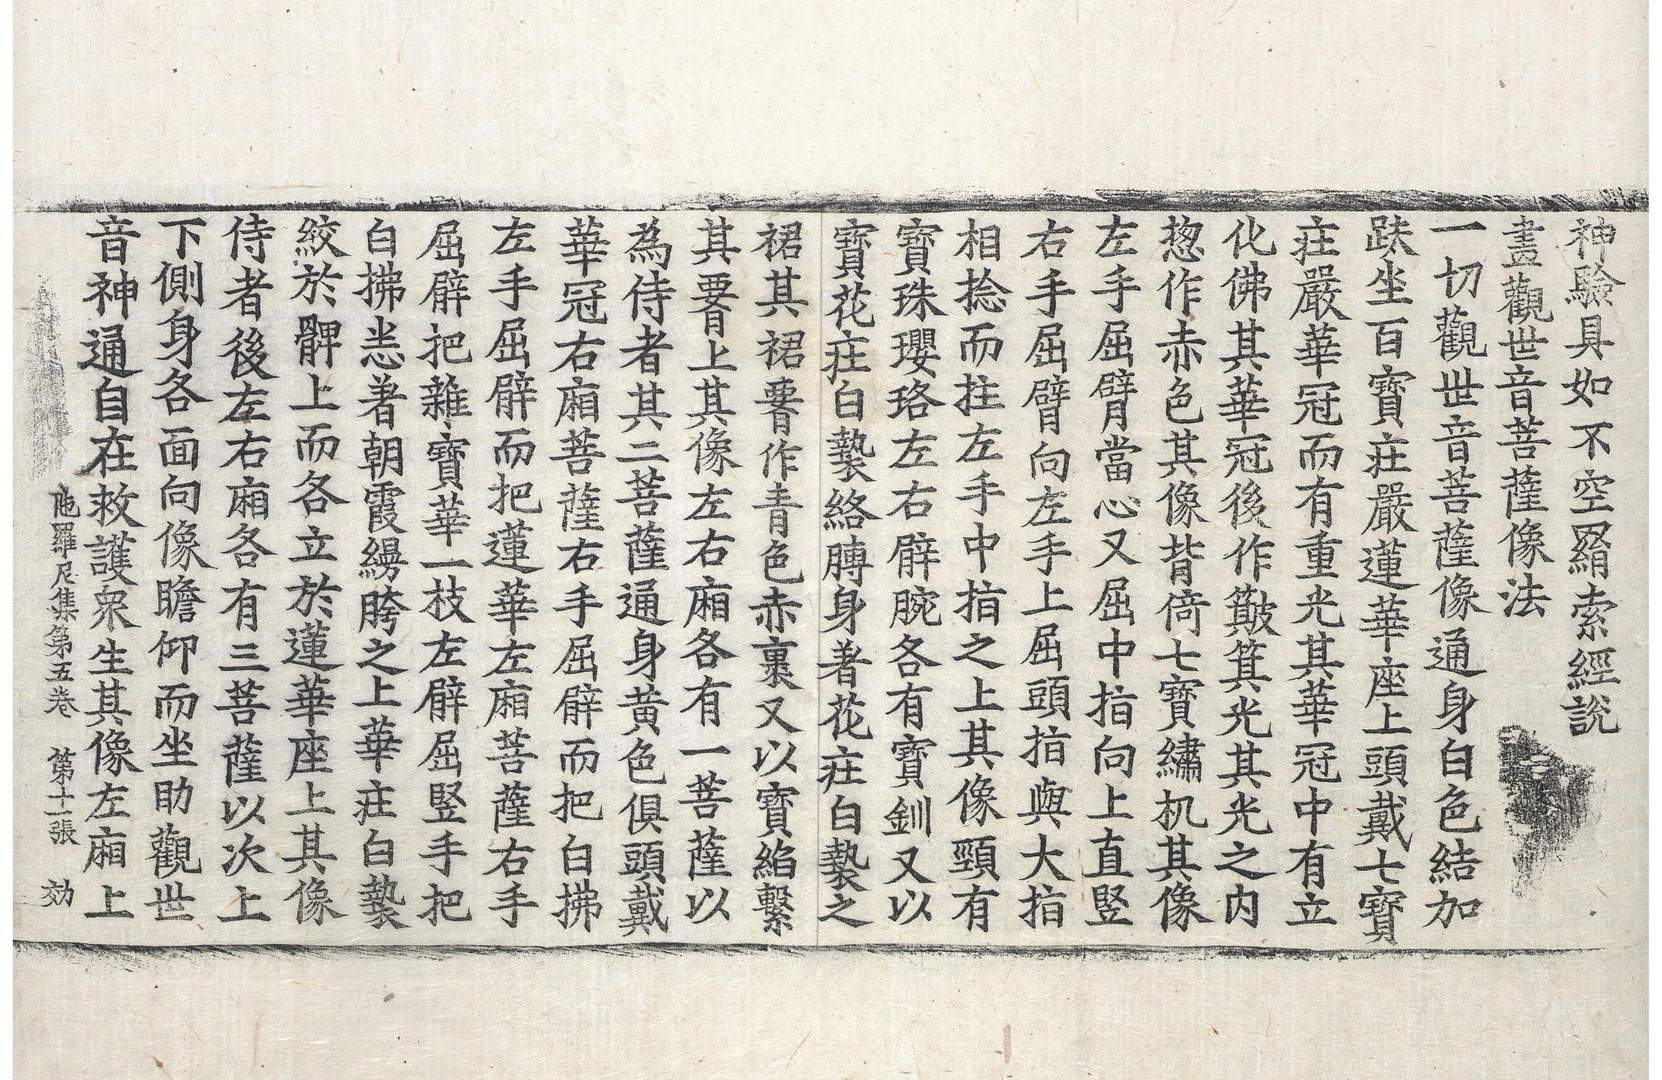 神驗具如不空羂索經說
畫觀世音菩薩像法
一切觀世音菩薩像通身白色結加
趺坐百寶莊嚴蓮華座上頭戴七寶
莊嚴華冠而有重光其華冠中有立
化佛其華冠後作簸箕光其光之内
惣作赤色其像背倚七寶繡机其像
左手屈臂當心又屈中指向上直竪
右手屈臂向左手上屈頭指與大指
相捻而拄左手中指之上其像頸有
寶珠瓔珞左右臂腕各有寶釧又以
寶花庄白㲲絡膊身著花庄白㲲之
裙其裙䙅作青色赤裏又以寶縚繫
其要上其像左右廂各有一菩薩以
為侍者其二菩薩通身黄色俱頭戴
華冠右廂菩薩右手屈臂而把白拂
左手屈臂而把蓮華左廂菩薩右手
屈臂把雜寶華一枝左臂屈竪手把
白拂恙著朝霞縵胯之上華庄白㲲
絞於髀上而各立於蓮華座上其像
侍者後左右廂各有三菩薩以次上
下側身各面向像瞻仰而坐助觀世
音神通自在救護衆生其像左廂上
陁羅尼集第五卷 第十一張 効